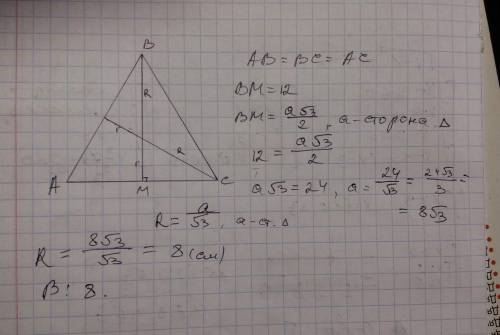 B
R
r
R
r
A
M
C
AB = BC = AC
BM = 12
BM = a√3/2, a-сторона Δ
12 = a√3/2
a√3 = 24, a = 24/√3 = 24√3/3 =
= 8√3
R = a/√3, a-ст. Δ
R = 8√3/√3 = 8 (см)
В: 8.